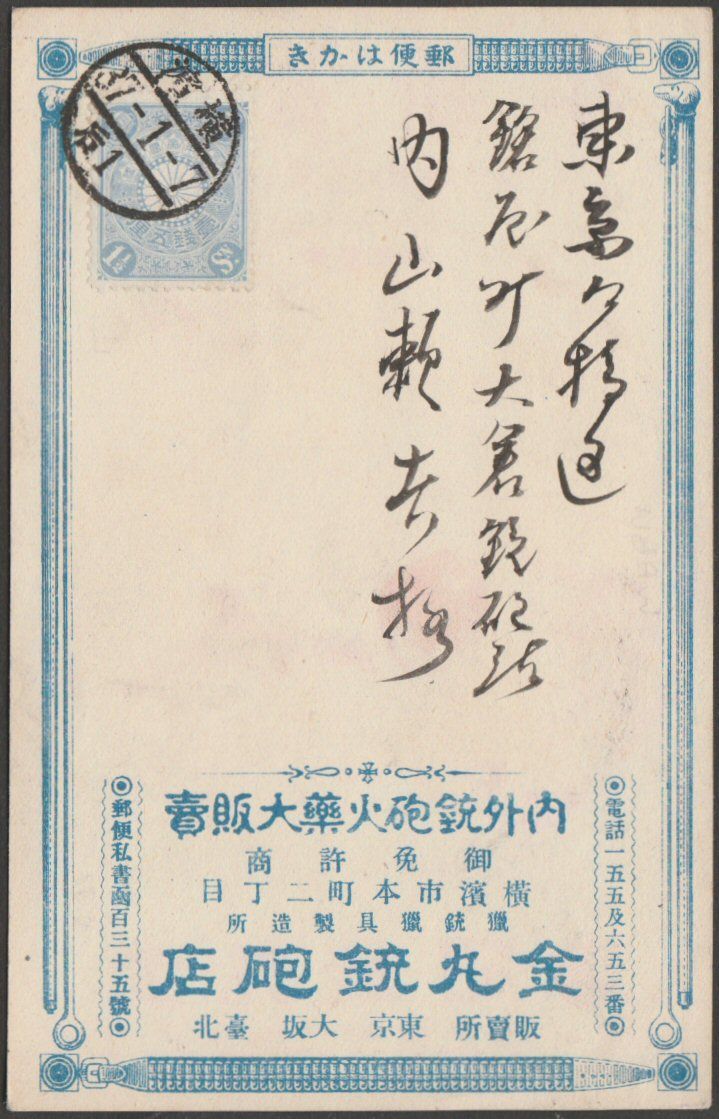 郵便はかき
橫濱
37-1-7
后1
壹錢五厘
1½
東京京橋區
鎗屋町大倉銃砲店
内山賴吉様
内外銃砲火藥大販賣
御免許商
橫濱市本町二丁目
獵銃獵具製造所
金丸銃砲店
販賣所 東京 大坂 臺北
電話一五五及六五三番
郵便私書凾百三十五號